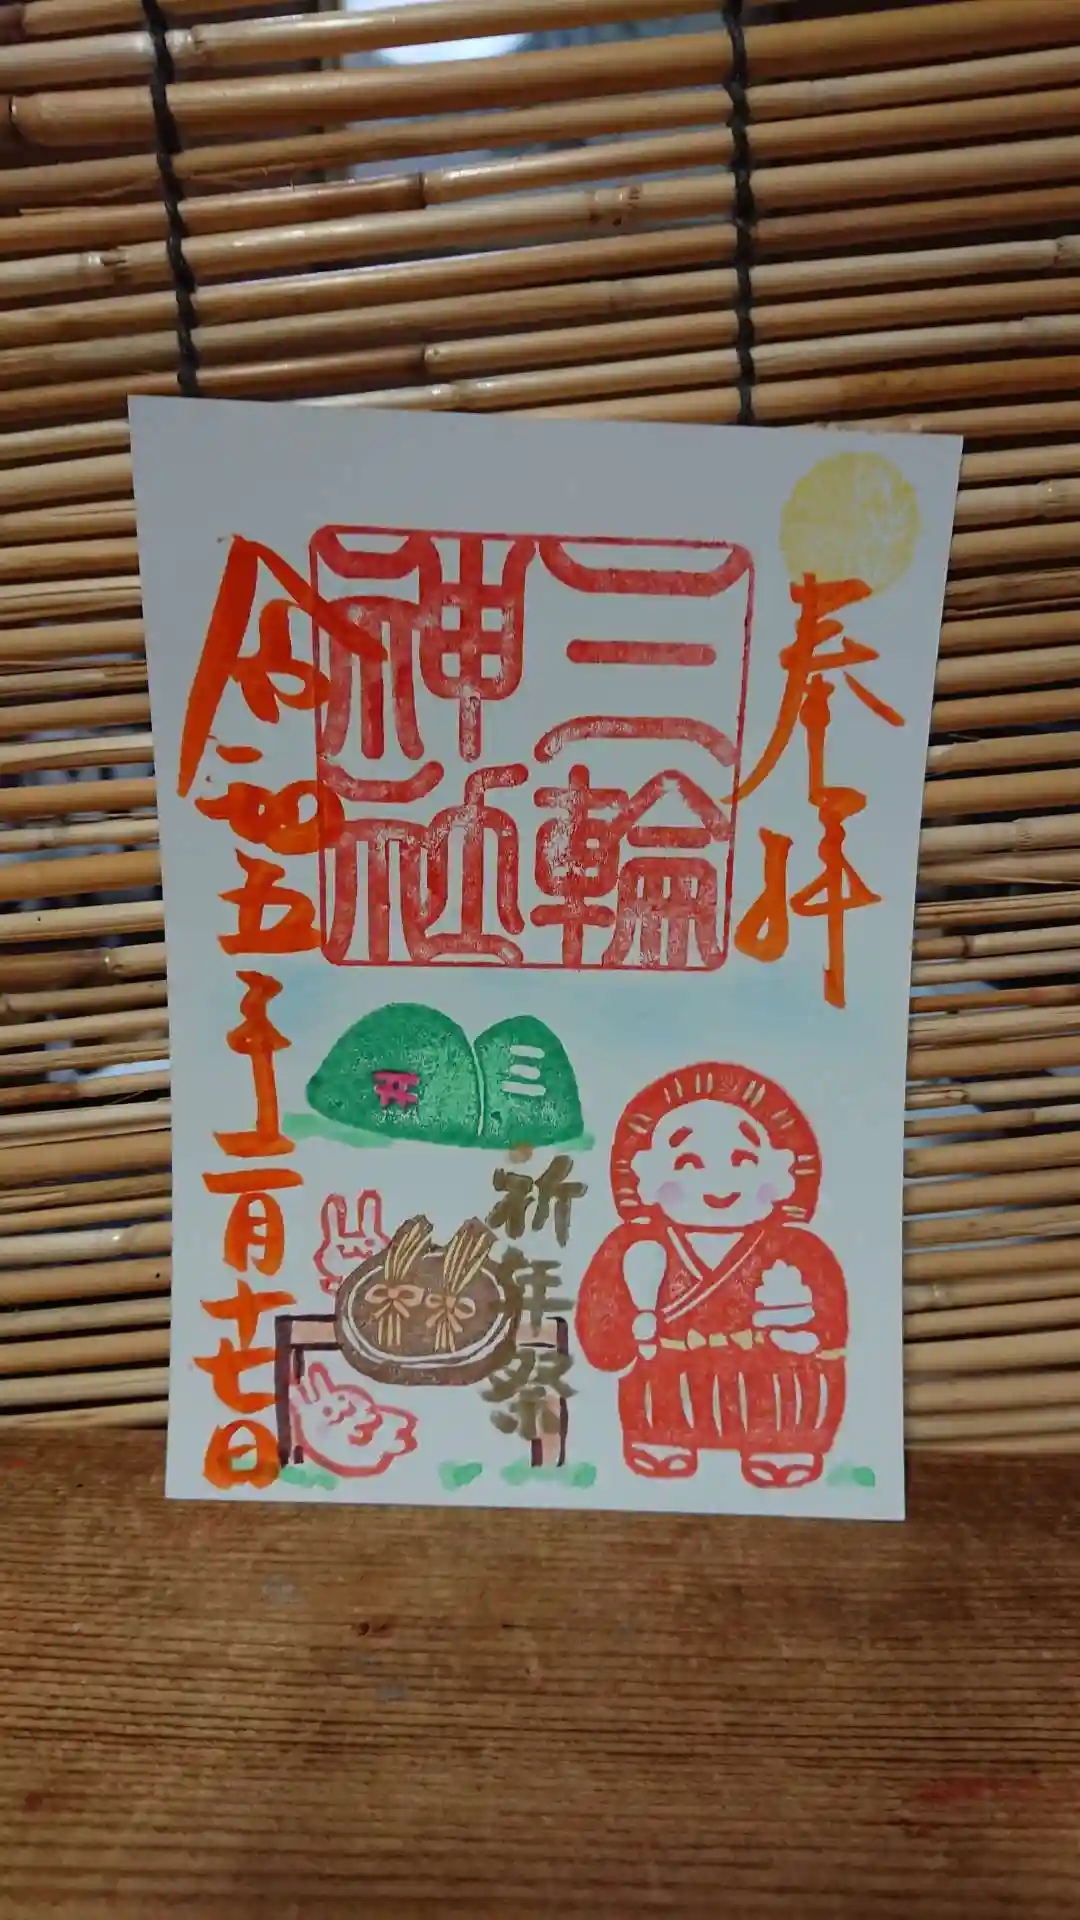 奉拝
三輪
神社
令和五年二月十七日
三
祈年祭